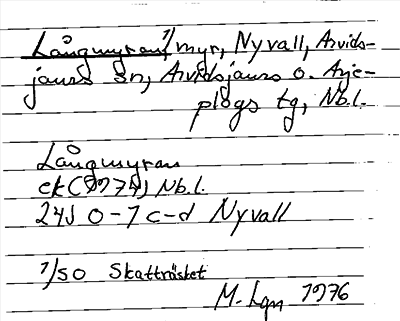 Långmyran 1), myr, Nyvall, Arvids-
jaurs sn, Arvidsjaurs o. Arje-
plogs tg, Nb.l.
Långmyran
ek (1974) Nb.l.
24J 0-1 c-d Nyvall
1/ SO Skatträsket
M. Lgn 1976